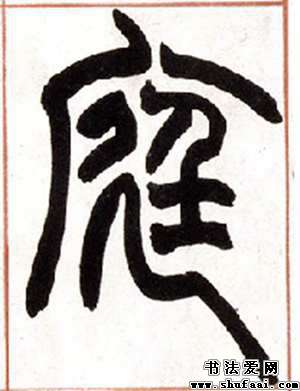 庭
书法爱网
www.shufaai.com